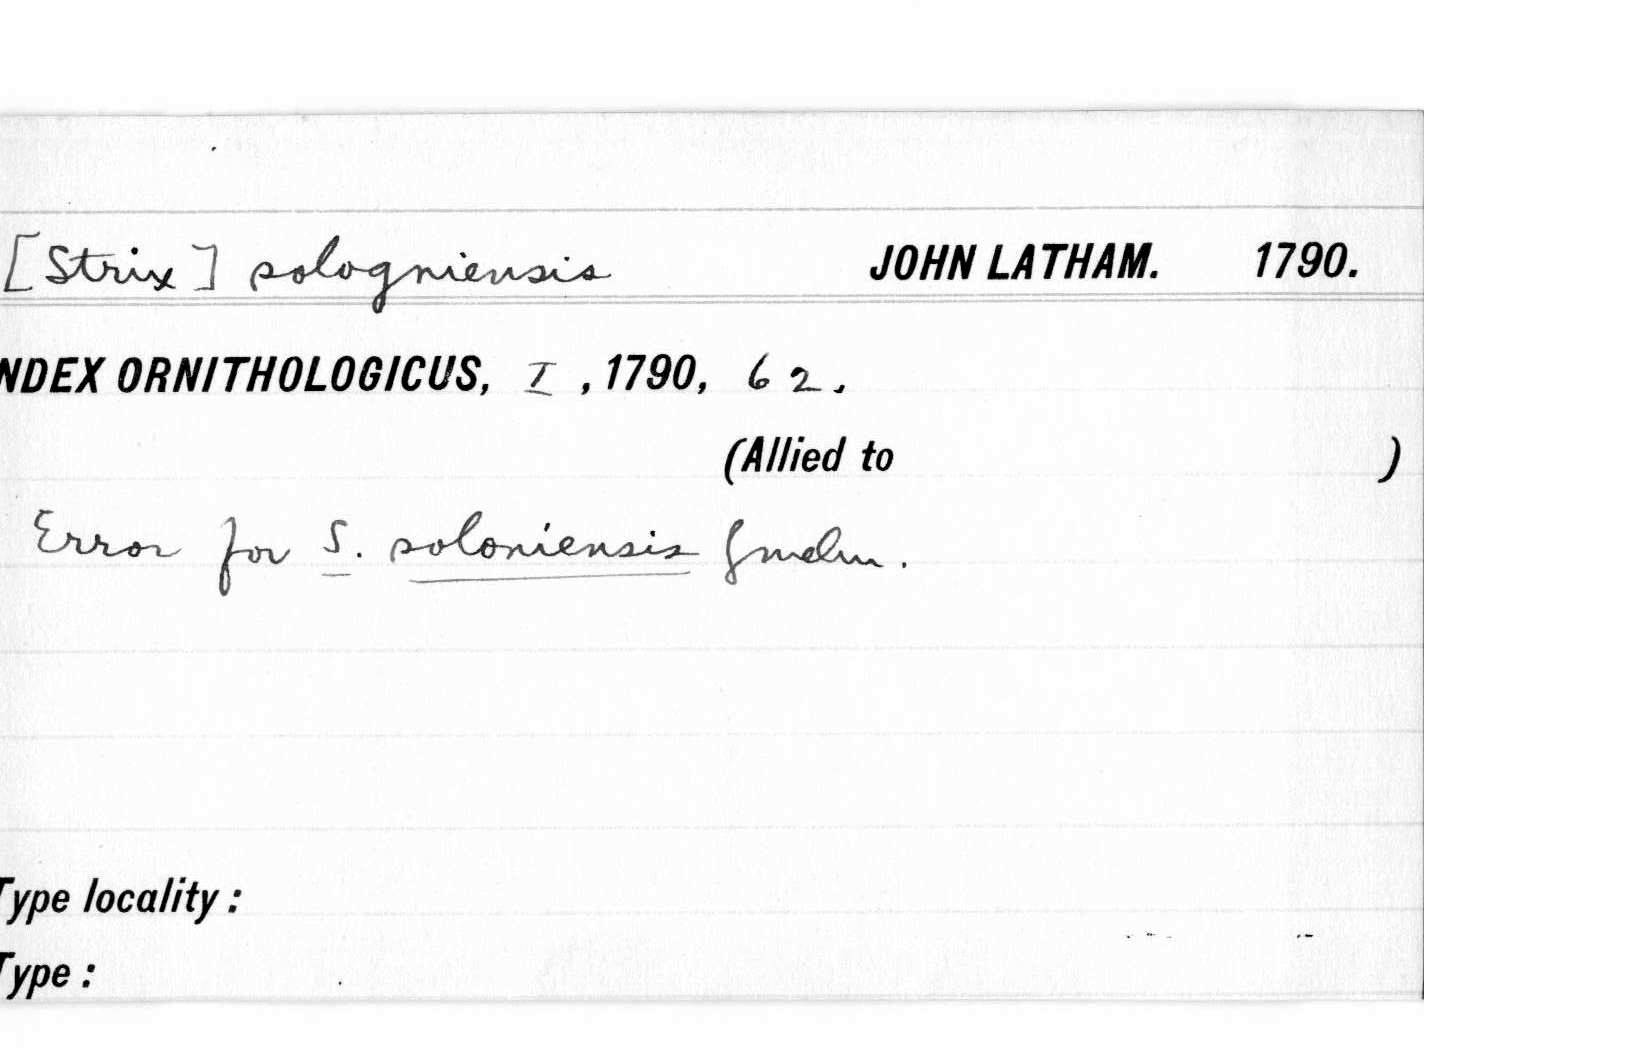 [Strix] sologniensis JOHN LATHAM. 1790.
NDEX ORNITHOLOGICUS, I , 1790, 62.
(Allied to )
Error for S. soloniensis Gmelin.
Type locality :
Type :